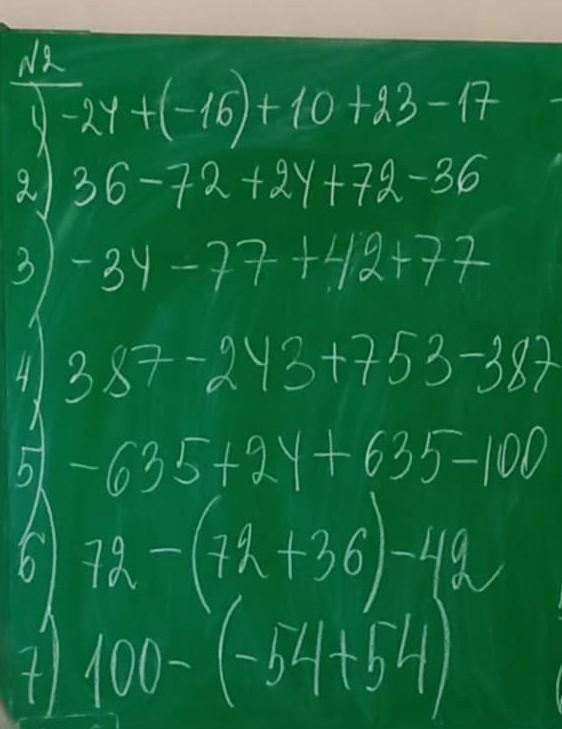 №2
1) -24+(-16)+10+23-17
2) 36-72+24+72-36
3) -34-77+42+77
4) 387-243+753-387
5) -635+24+635-100
6) 72-(72+36)-42
7) 100-(-54+54)